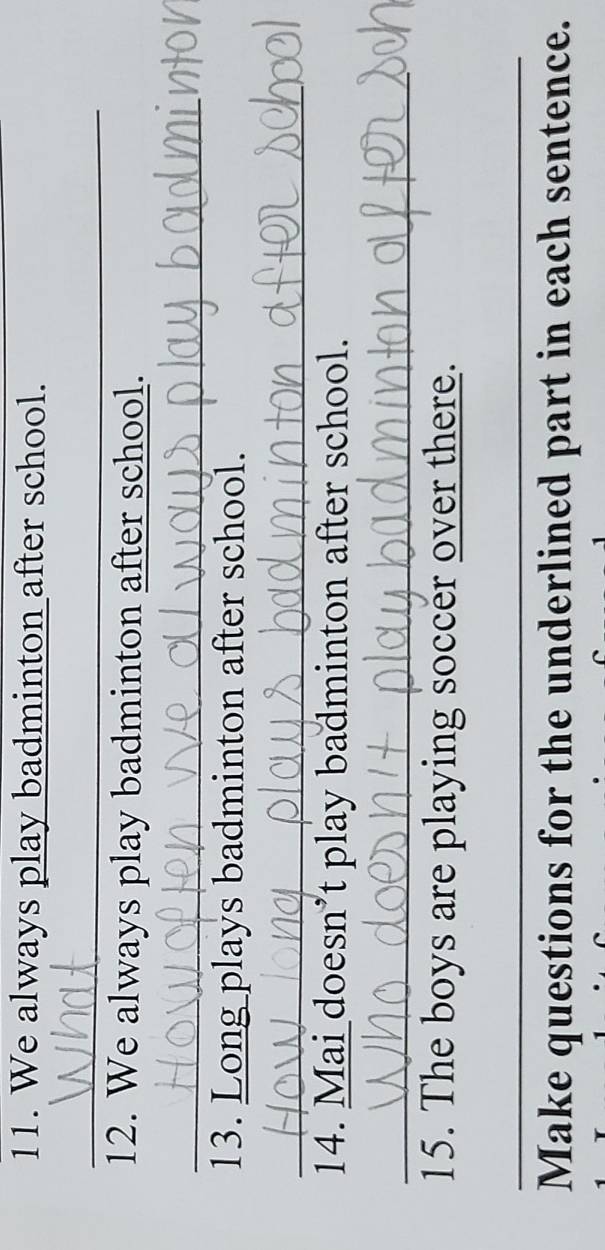 11. We always play badminton after school.
What
12. We always play badminton after school.
How often we always play badminton
13. Long plays badminton after school.
How long plays badminton after school
14. Mai doesn't play badminton after school.
Who doesn't play badminton after sch
15. The boys are playing soccer over there.
Make questions for the underlined part in each sentence.